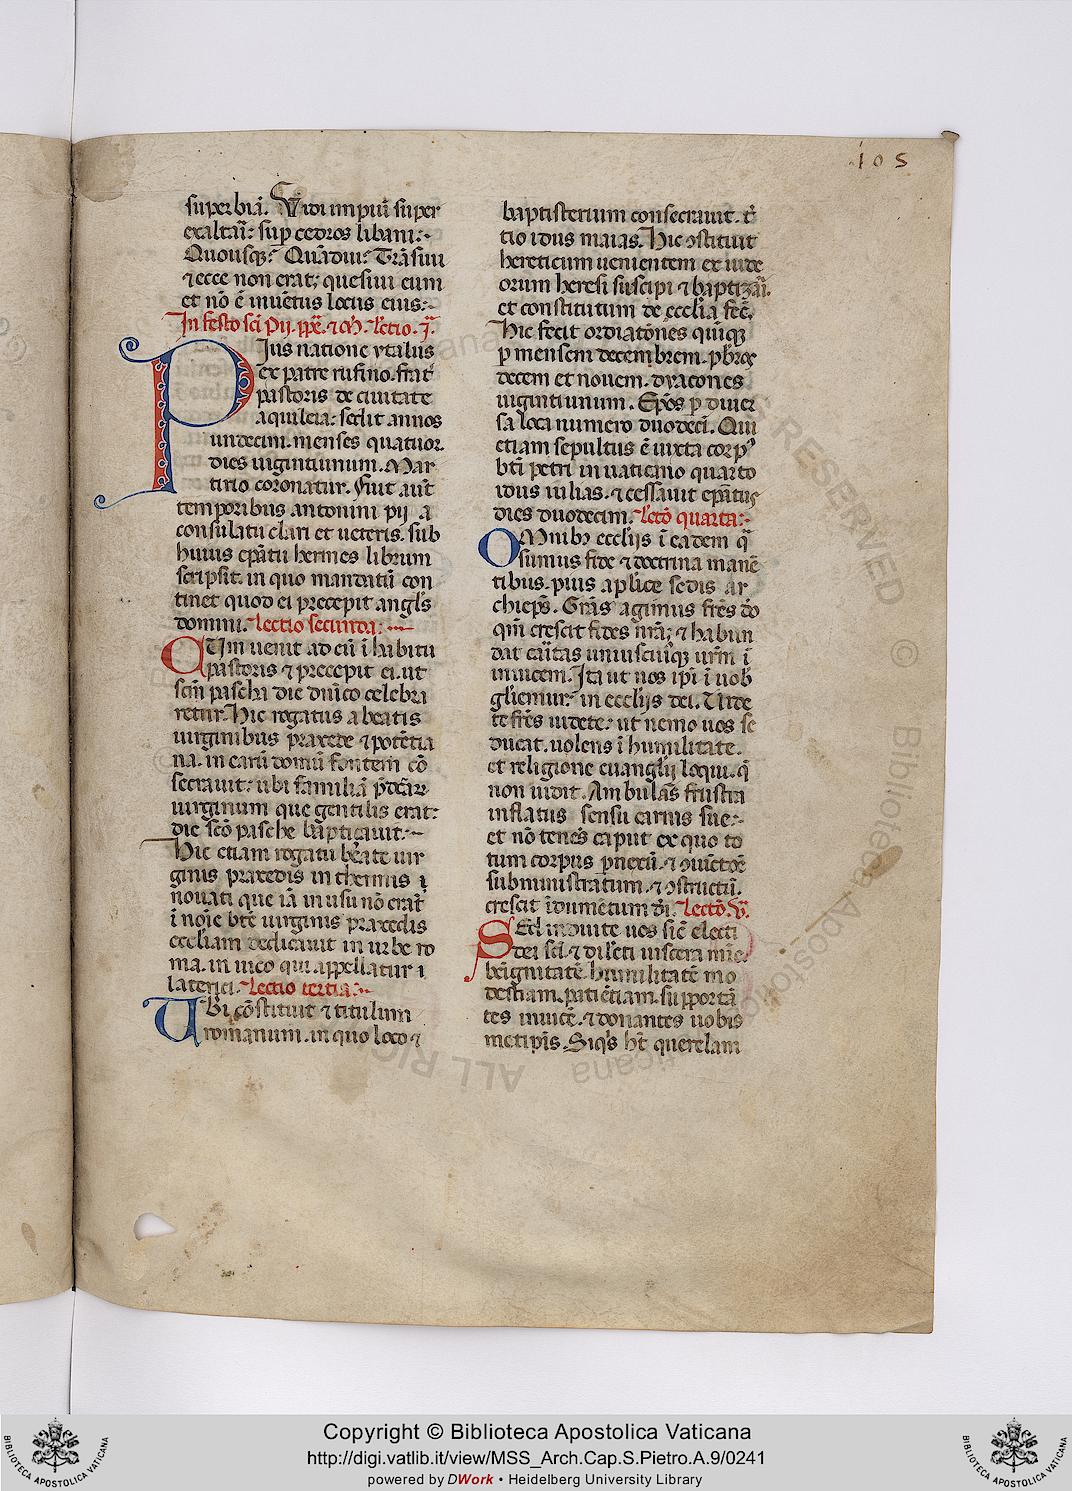 105
superbiā. Vidi impiū super
exaltatū: sup cedros libani:-
Quousq;? Quādiu? Trāsiui
⁊ ecce non erat; quesiui eum
et nō ē inuētus locus eius:-
In festo sc̄i Pij. pp̄e. ⁊ m̄. Lectio. j.ᵃ
Pius natione ytalus
ex patre rufino. frat̄
pastoris de ciuitate
aquileia: sedit annos
undecim. menses quatuor.
dies uigintiunum. Mar
tirio coronatur. Fuit aut̄
temporibus antonini pij a
consulatu clari et ueteris. sub
huius ep̄atu hermes librum
scripsit. in quo mandatū con
tinet quod ei precepit angl̄s
domini. Lectio secunda:-
CUm uenit ad eū ī habitu
pastoris ⁊ precepit ei. ut
sc̄m pascha die dn̄ico celebra
retur. Hic rogatus a beatis
uirginibus praxede ⁊ potētia
na. in earū domū fontem cō
secrauit: ubi familiā p̄dcār
uirginum que gentilis erat:
die sc̄o pasche bapticauit:-
Hic etiam rogatu bēate uir
ginis praxedis in thermis
nouati que iā in usu nō erat̄
ī noīe bt̄e uirginis praxedis
eccl̄iam dedicauit in urbe ro
ma. in uico qui appellatur
laterici. Lectio tertia:-
UBi cōstituit ⁊ titulum
romanum. in quo loco ⁊
baptisterium consecrauit. t̄
tio idus maias. Hic ꝯstituit
hereticum uenientem ex iude
orum heresi suscipi ⁊ baptizāi.
et constitutum de eccl̄ia fec̄.
Hic fecit ordiatōnes quīq
p mensem decembrem. p̄bros
decem et nouem. dyacones
uigintiunum. Ep̄os p diuer
sa loca numero duodeci. Qui
etiam sepultus ē iuxta corpꝰ
bt̄i petri in uaticano quarto
idus iulias. ⁊ cessauit ep̄atus
dies duodecim. Lectō quarta:-
OMnibꝫ eccl̄ijs ī eadem q̄
sumus fide ⁊ doctrina manē
tibus. pius apl̄ice sedis ar
chiep̄s. Grās agimus fr̄es dō
qm̄ crescit fides nr̄a; ⁊ habun
dat cāitas uniuscuīq urm̄ ī
inuicem. Ita ut nos ip̄i ī uob̄
gl̄iemur: in eccl̄ijs dei. Uide
te fr̄es uidete: ut nemo uos se
ducat. uolens ī humilitate.
et religione euangl̄ij loqui. q̄
non uidit. Ambulās frustra
inflatus sensu carnis sue:-
et nō tenēs caput ex quo to
tum corpus p nexū. ⁊ ꝯiūctōe
subministratum. ⁊ ꝯstructū.
crescit ī dumētum dī. Lectō. v.ᵃ
SEd induite uos sic̄ electi
dei sc̄i. ⁊ dilc̄ti uiscera mīe.
beīgnitatē. humilitatē mo
destiam. patiētiam. supportā
tes inuicē. ⁊ donantes uobis
metip̄is. Siq̄s h̄t querelam
Copyright © Biblioteca Apostolica Vaticana
http://digi.vatlib.it/view/MSS_Arch.Cap.S.Pietro.A.9/0241
powered by DWork • Heidelberg University Library